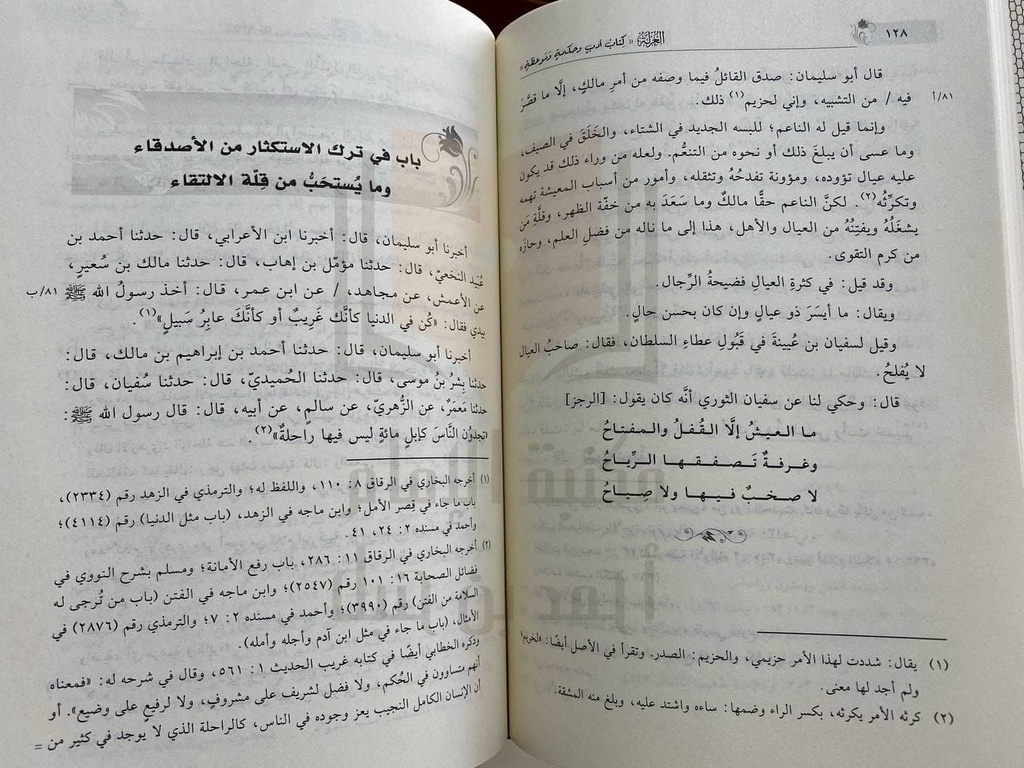 ١٢٨
العزلة «كتاب أدب وحكمة وموعظة»
قال أبو سليمان: صدق القائلُ فيما وصفه من أمرِ مالكٍ، إلَّا ما قصَّرَ
فيه / من التشبيه، وإني لحزيم(١) ذلك.
٨١/أ
وإنما قيل له الناعم؛ للبسه الجديد في الشتاء، والخَلَقَ في الصيف،
وما عسى أن يبلغَ ذلك أو نحوه من التنعُّم. ولعله من وراء ذلك قد يكون
عليه عيال تؤوده، ومؤونة تفدحُهُ وتثقله، وأمور من أسباب المعيشة تهمه
وتكرثُه(٢). لكنَّ الناعم حقًّا مالكٌ وما سَعَدَ به من خفَّة الظهر، وقلَّةِ مَن
يشغَلُهُ ويفتِنُهُ من العيال والأهل، هذا إلى ما ناله من فضلِ العلم، وحازَه
من كرم التقوى.
وقد قيل: في كثرةِ العيالِ فضيحةُ الرِّجال.
ويقال: ما أيسَرَ ذو عيالٍ وإن كان بحسن حالٍ.
وقيل لسفيان بن عُيينةَ في قَبُولِ عطاءِ السلطان، فقال: صاحبُ العيال
لا يُفلحُ.
قال: وحكي لنا عن سفيان الثوري أنَّه كان يقول: [الرجز]
ما العيشُ إلَّا القُفلُ والمفتاحُ
وغرفةٌ تَصفقها الرِّياحُ
لا صخبٌ فيها ولا صِياحُ
(١) يقال: شددت لهذا الأمر حزيمي، والحزيم: الصدر. وتقرأ في الأصل أيضًا: «لخريم»
ولم أجد لها معنى.
(٢) كرثه الأمر يكرثه، بكسر الراء وضمها: ساءه واشتد عليه، وبلغ منه المشقة.
باب في ترك الاستكثار من الأصدقاء
وما يُستحَبُّ من قِلَّة الالتقاء
أخبرنا أبو سليمان، قال: أخبرنا ابن الأعرابي، قال: حدثنا أحمد بن
عُبَيد النخعيّ، قال: حدثنا مؤمّل بن إهاب، قال: حدثنا مالك بن سُعيرٍ،
عن الأعمش، عن مجاهد، / عن ابن عمر، قال: أخذ رسولُ الله ﷺ
٨١/ب
بيدي فقال: «كُن في الدنيا كأنَّكَ غَرِيبٌ أو كأنَّكَ عابِرُ سَبيلٍ»(١).
أخبرنا أبو سليمان، قال: حدثنا أحمد بن إبراهيم بن مالك، قال:
حدثنا بِشرُ بنُ موسى، قال: حدثنا الحُميديّ، قال: حدثنا سُفيان، قال:
حدثنا مَعمَرٌ، عن الزُّهريّ، عن سالمٍ، عن أبيه، قال: قال رسول الله ﷺ:
«تجدُون النَّاسَ كإبلٍ مائةٍ ليس فيها راحلةٌ»(٢).
(١) أخرجه البخاري في الرقاق ٨: ١١٠، واللفظ له؛ والترمذي في الزهد رقم (٢٣٣٤)،
باب ما جاء في قِصر الأمل؛ وابن ماجه في الزهد، (باب مثل الدنيا) رقم (٤١١٤)؛
وأحمد في مسنده ٢: ٢٤، ٤١.
(٢) أخرجه البخاري في الرقاق ١١: ٢٨٦، باب رفع الأمانة؛ ومسلم بشرح النووي في
فضائل الصحابة ١٦: ١٠١ رقم (٢٥٤٧)؛ وابن ماجه في الفتن (باب من تُرجى له
السلامة من الفتن) رقم (٣٩٩٠)؛ وأحمد في مسنده ٢: ٧؛ والترمذي رقم (٢٨٧٦) في
الأمثال، (باب ما جاء في مثل ابن آدم وأجله وأمله).
وذكره الخطابي أيضًا في كتابه غريب الحديث ١: ٥٦١، وقال في شرحه له: «فمعناه
أنهم متساوون في الحُكم، ولا فضل لشريف على مشروفٍ، ولا لرفيعٍ على وضيع». أو
أن الإنسان الكامل النجيب يعز وجوده في الناس، كالراحلة الذي لا يوجد في كثير من =